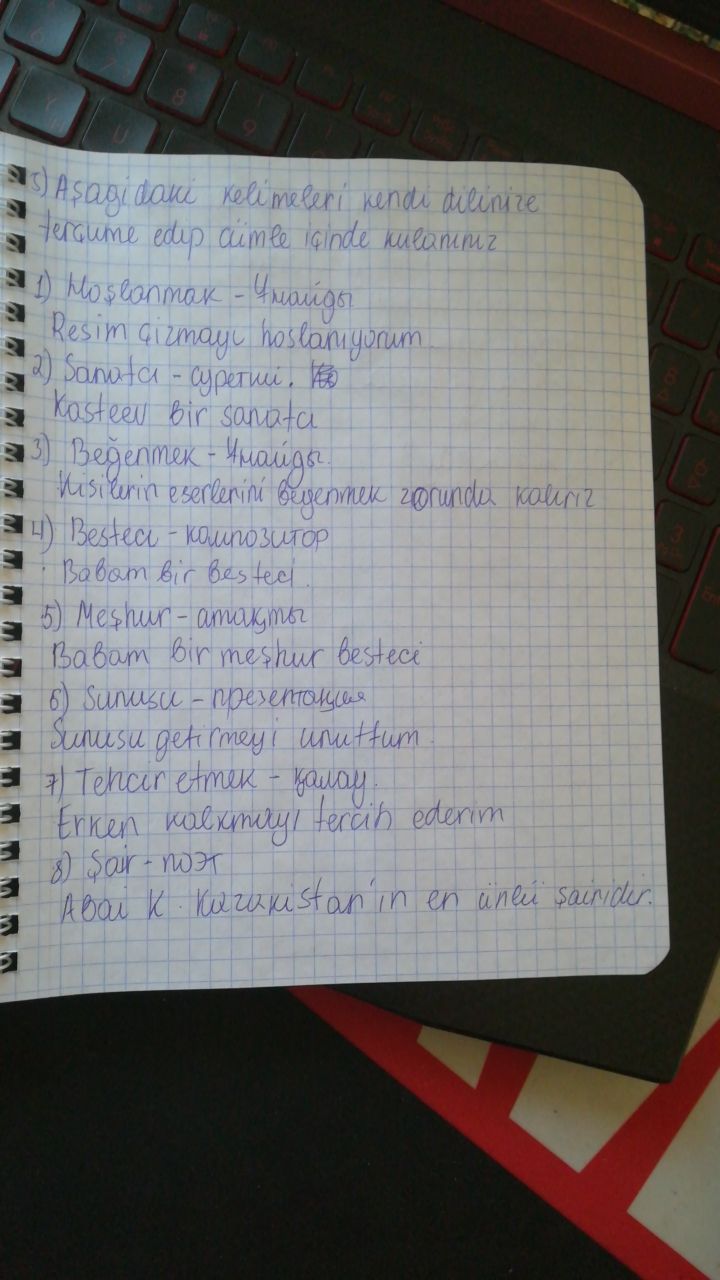 5) Aşagidaki kelimeleri kendi dilinize
tercüme edip cümle içinde kulanınız
1) Hoşlanmak - Ұнайды
Resim çizmayı hoslanıyorum.
2) Sanatcı - суретші.
Kasteev bir sanatcı
3) Beğenmek - Ұнайды.
Kisilerin eserlerini begenmek zorunda kalırız
4) Besteci - композитор
Babam bir besteci.
5) Meşhur - атақты
Babam bir meşhur besteci
6) Sunusu - презентация
Sunusu getirmeyi unuttum.
7) Tehcir etmek - қалау.
Erken kalkmayı tercih ederim
8) Şair - поэт
Abai K. Kazakistan'ın en ünlü şairidir.
6
7
8
9
Y
U